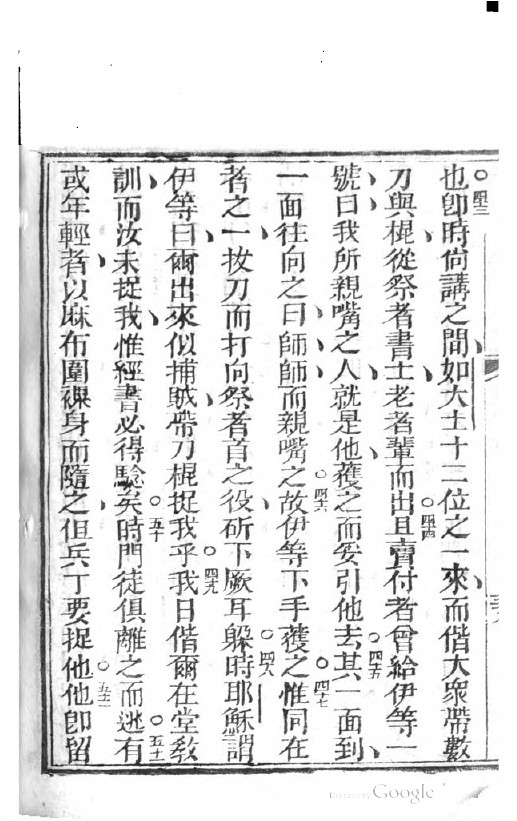 也○四三即時尙講之間如大士十二位之一來而偕大衆帶數
刀與棍從祭者書士老者輩而出○四四且賣付者曾給伊等一
號曰我所親嘴之人就是他獲之而妥引他去○四五其一面到
一面往向之曰師師而親嘴之○四六故伊等下手獲之○四七惟同在
者之一拔刀而打向祭者首之役斫下厥耳○四八躲時耶穌謂
伊等曰爾出來似捕賊帶刀棍捉我乎○四九我日偕爾在堂敎
訓而汝未捉我惟經書必得驗矣○五十時門徒俱離之而逃○五十一有
或年輕者以麻布圍裸身而隨之但兵丁要捉他○五十二他卽留
Google